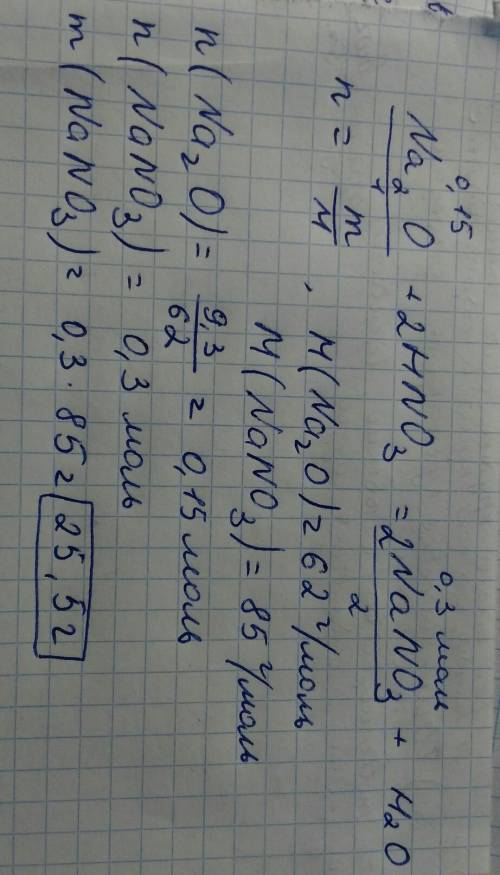 0,15 0,3 моль
Na₂O + 2HNO₃ = 2NaNO₃ + H₂O
1 2
n = m/M, M(Na₂O) = 62 г/моль
M(NaNO₃) = 85 г/моль
n(Na₂O) = 9,3/62 = 0,15 моль
n(NaNO₃) = 0,3 моль
m(NaNO₃) = 0,3 · 85 = 25,5 г